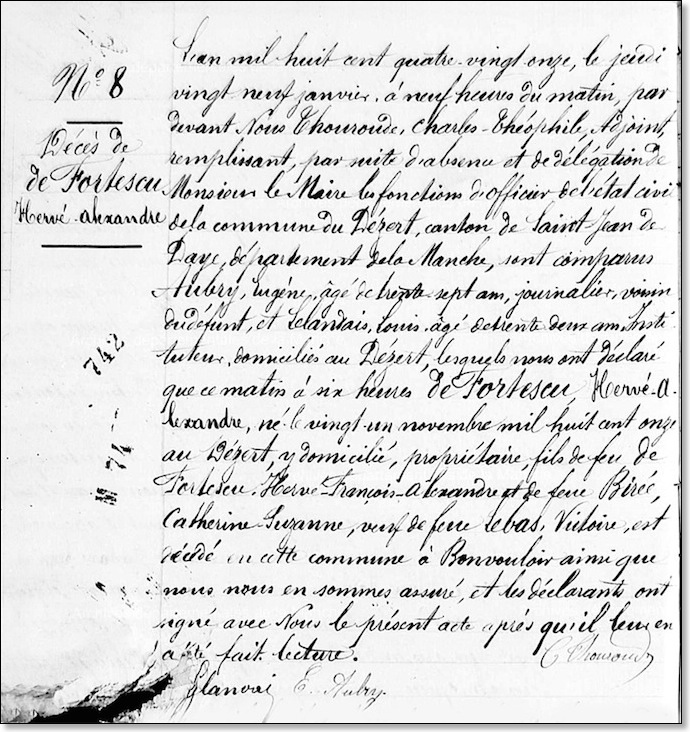 N° 8
Décès de
de Fortescu
Hervé-Alexandre
742
M 74
L'an mil huit cent quatre-vingt onze, le jeudi
vingt neuf janvier, à neuf heures du matin, par
devant Nous Thouroude, Charles-Théophile, Adjoint,
remplissant, par suite d'absence et de délégation de
Monsieur le Maire les fonctions d'officier de l'état civil
de la commune du Dézert, canton de Saint Jean de
Daye, département de la Manche, sont comparus
Aubry, Eugène, âgé de trente sept ans, journalier, voisin
du défunt, et Lelandais, Louis, âgé de trente deux ans, Insti-
tuteur, domiciliés au Dézert, lesquels nous ont déclaré
que ce matin à six heures de Fortescu, Hervé-A-
lexandre, né le vingt-un novembre mil huit cent onze
au Dézert, y domicilié, propriétaire, fils de feu de
Fortescu Hervé-François-Alexandre et de feue Birée,
Catherine-Suzanne, veuf de feue Lebas, Victoire, est
décédé en cette commune à Bonvouloir ainsi que
nous nous en sommes assuré, et les déclarants ont
signé avec Nous le présent acte après qu'il leur en
a été fait lecture.
C Thouroude
E. Aubry